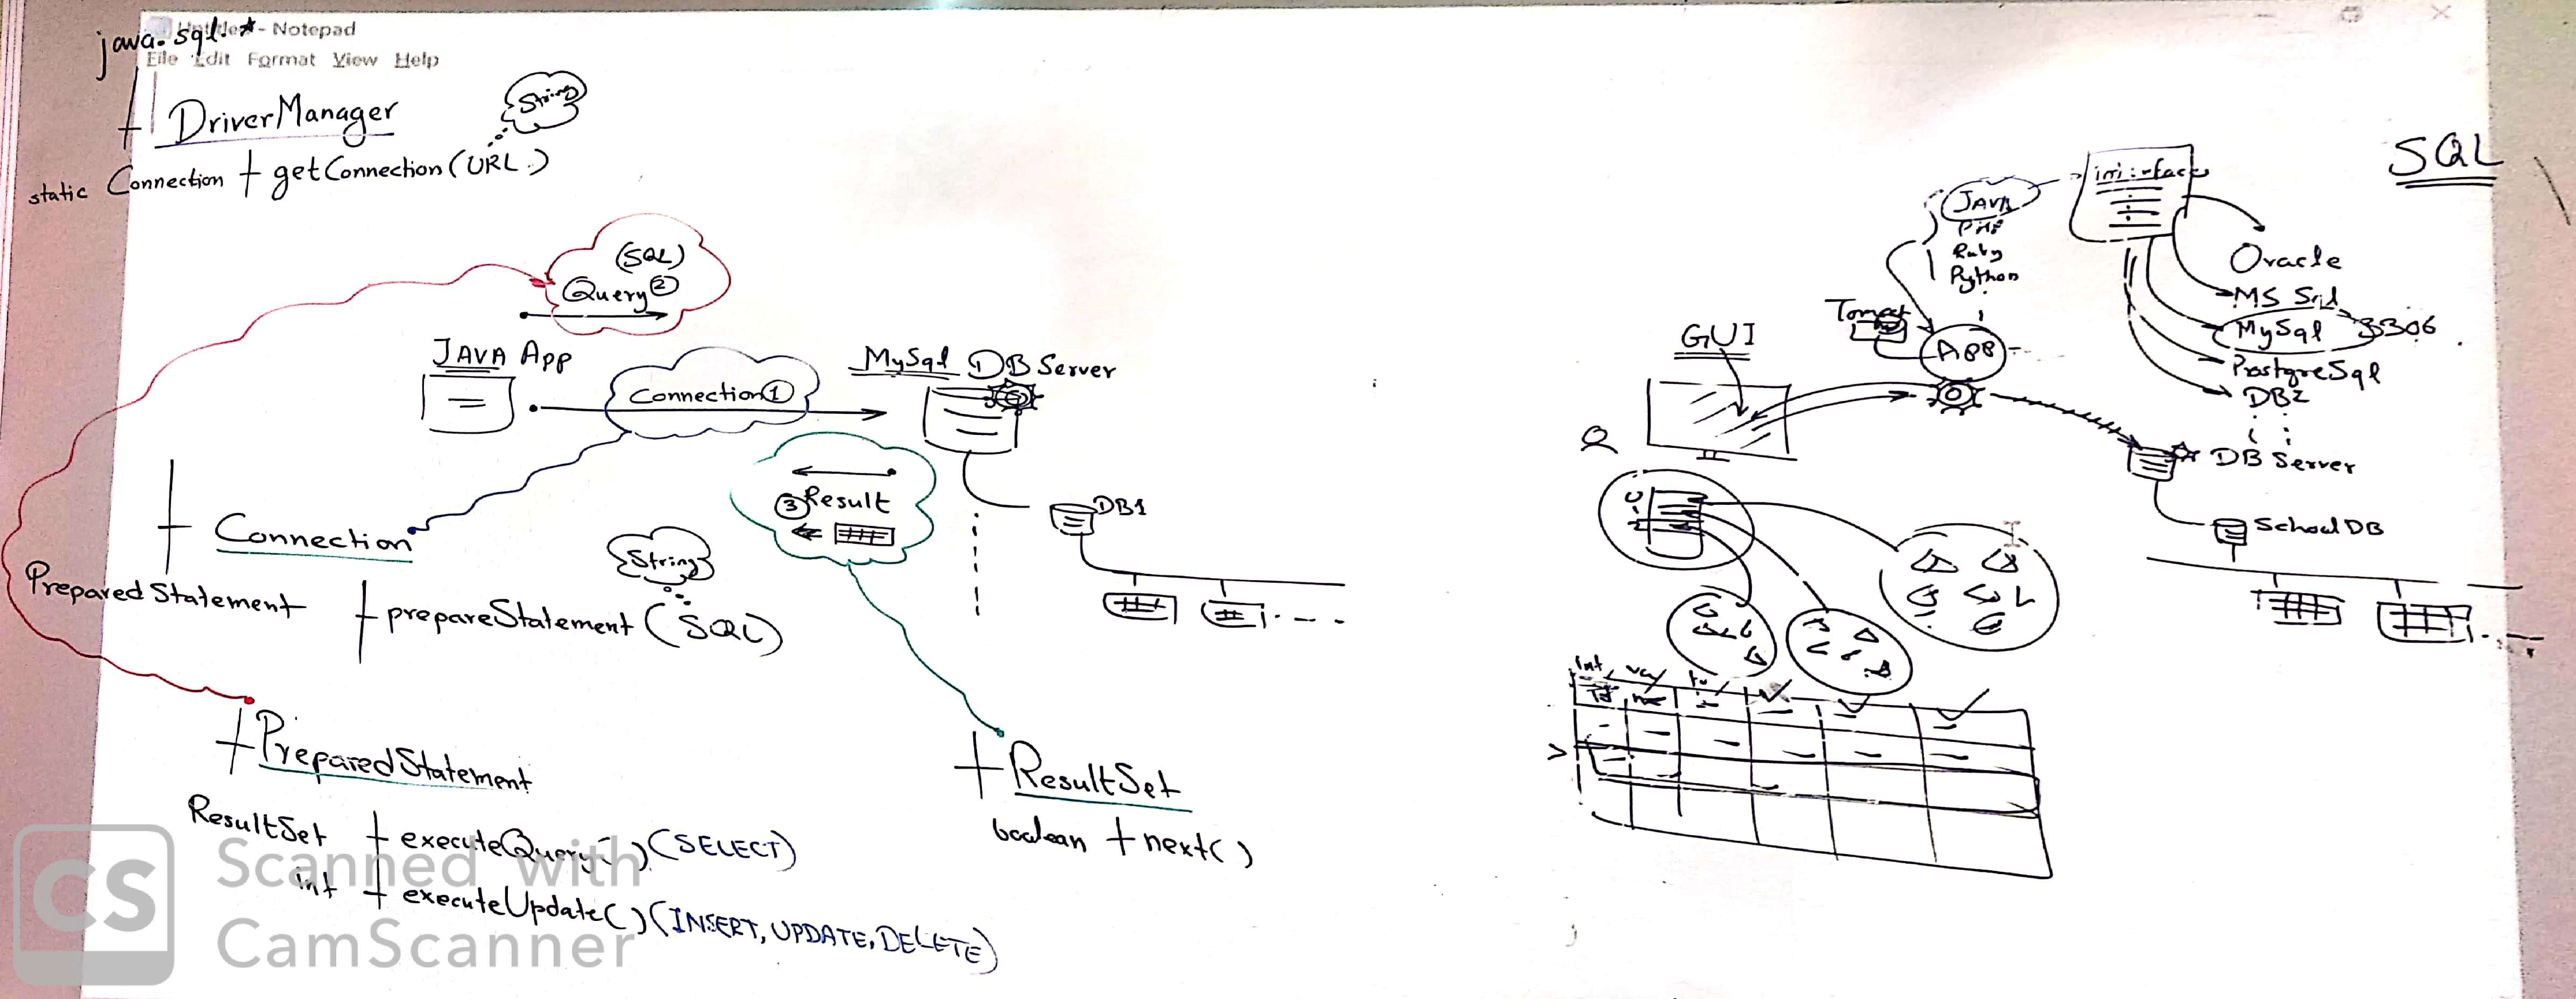 java.sql.*
- Notepad
File Edit Format View Help
DriverManager
String
static Connection + getConnection(URL)
(SQL)
Query ②
JAVA App
Connection ①
MySql DB Server
③ Result
DB1
+ Connection
String
PreparedStatement + prepareStatement (SQL)
+ PreparedStatement
ResultSet + executeQuery() (SELECT)
int + executeUpdate() (INSERT, UPDATE, DELETE)
+ ResultSet
boolean + next()
SQL
JAVA
PHP
Ruby
Python
Oracle
MS Sql
MySql 3306
PostgreSql
DB2
GUI
APP
DB Server
School DB
int
Id
CS Scanned with
CamScanner